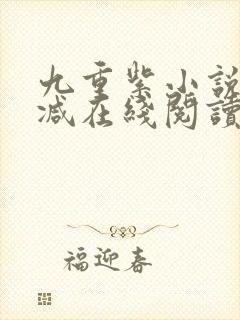 九重紫小説
减在綫閱讀
福迎春